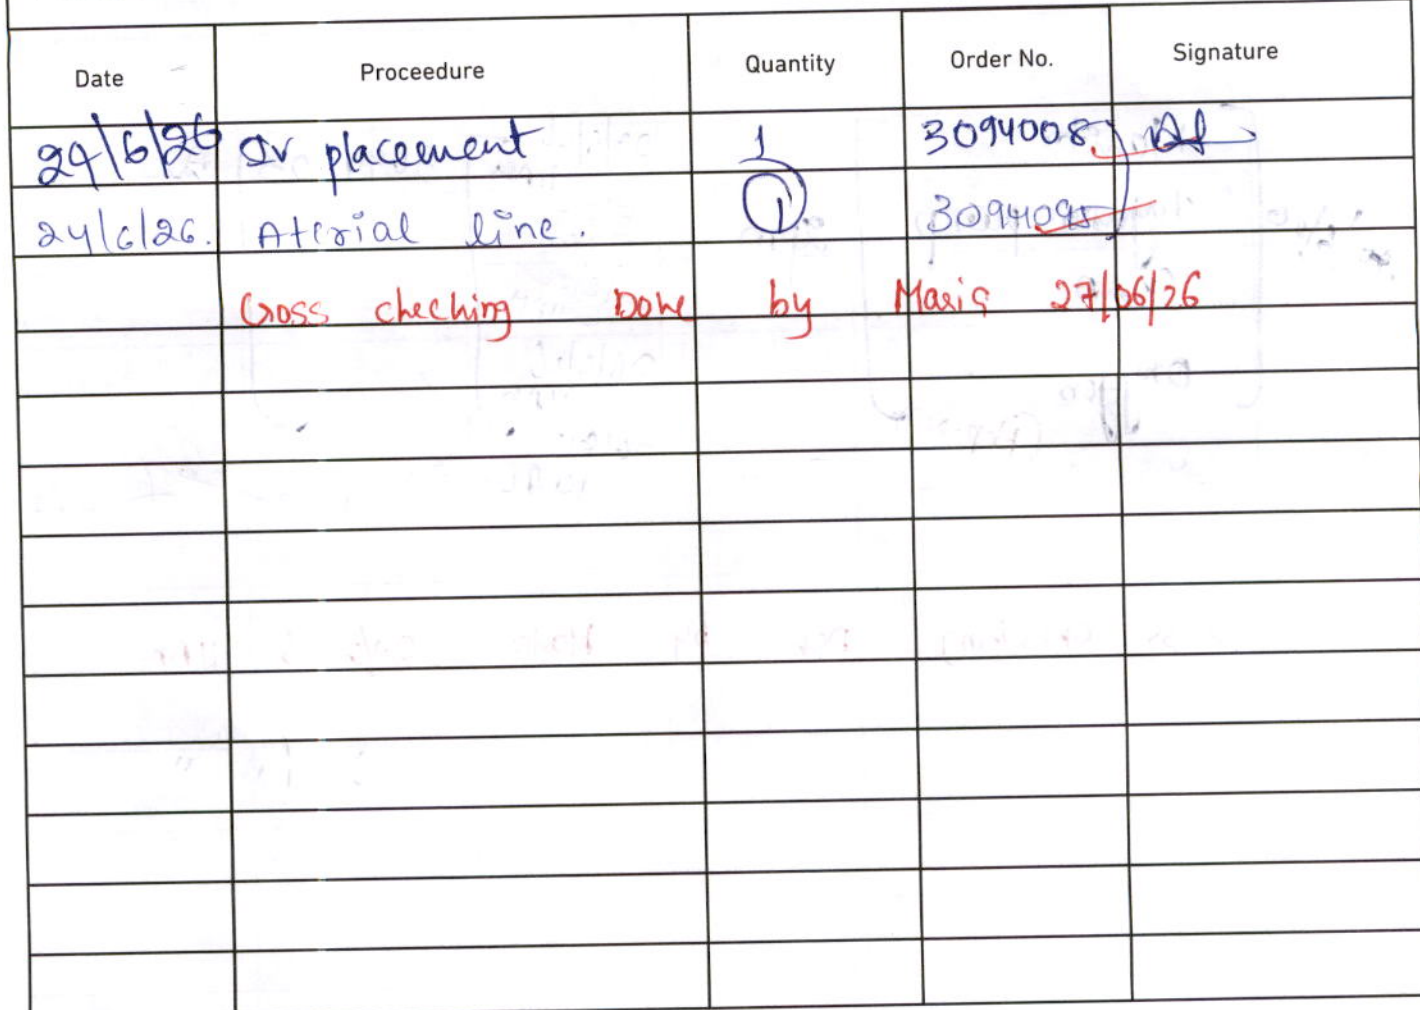 Date Proceedure Quantity Order No. Signature
24/6/26 Iv placement 1 3094008
24/6/26. Aterial line. 1 3094095
Cross checking Done by Maris 27/06/26